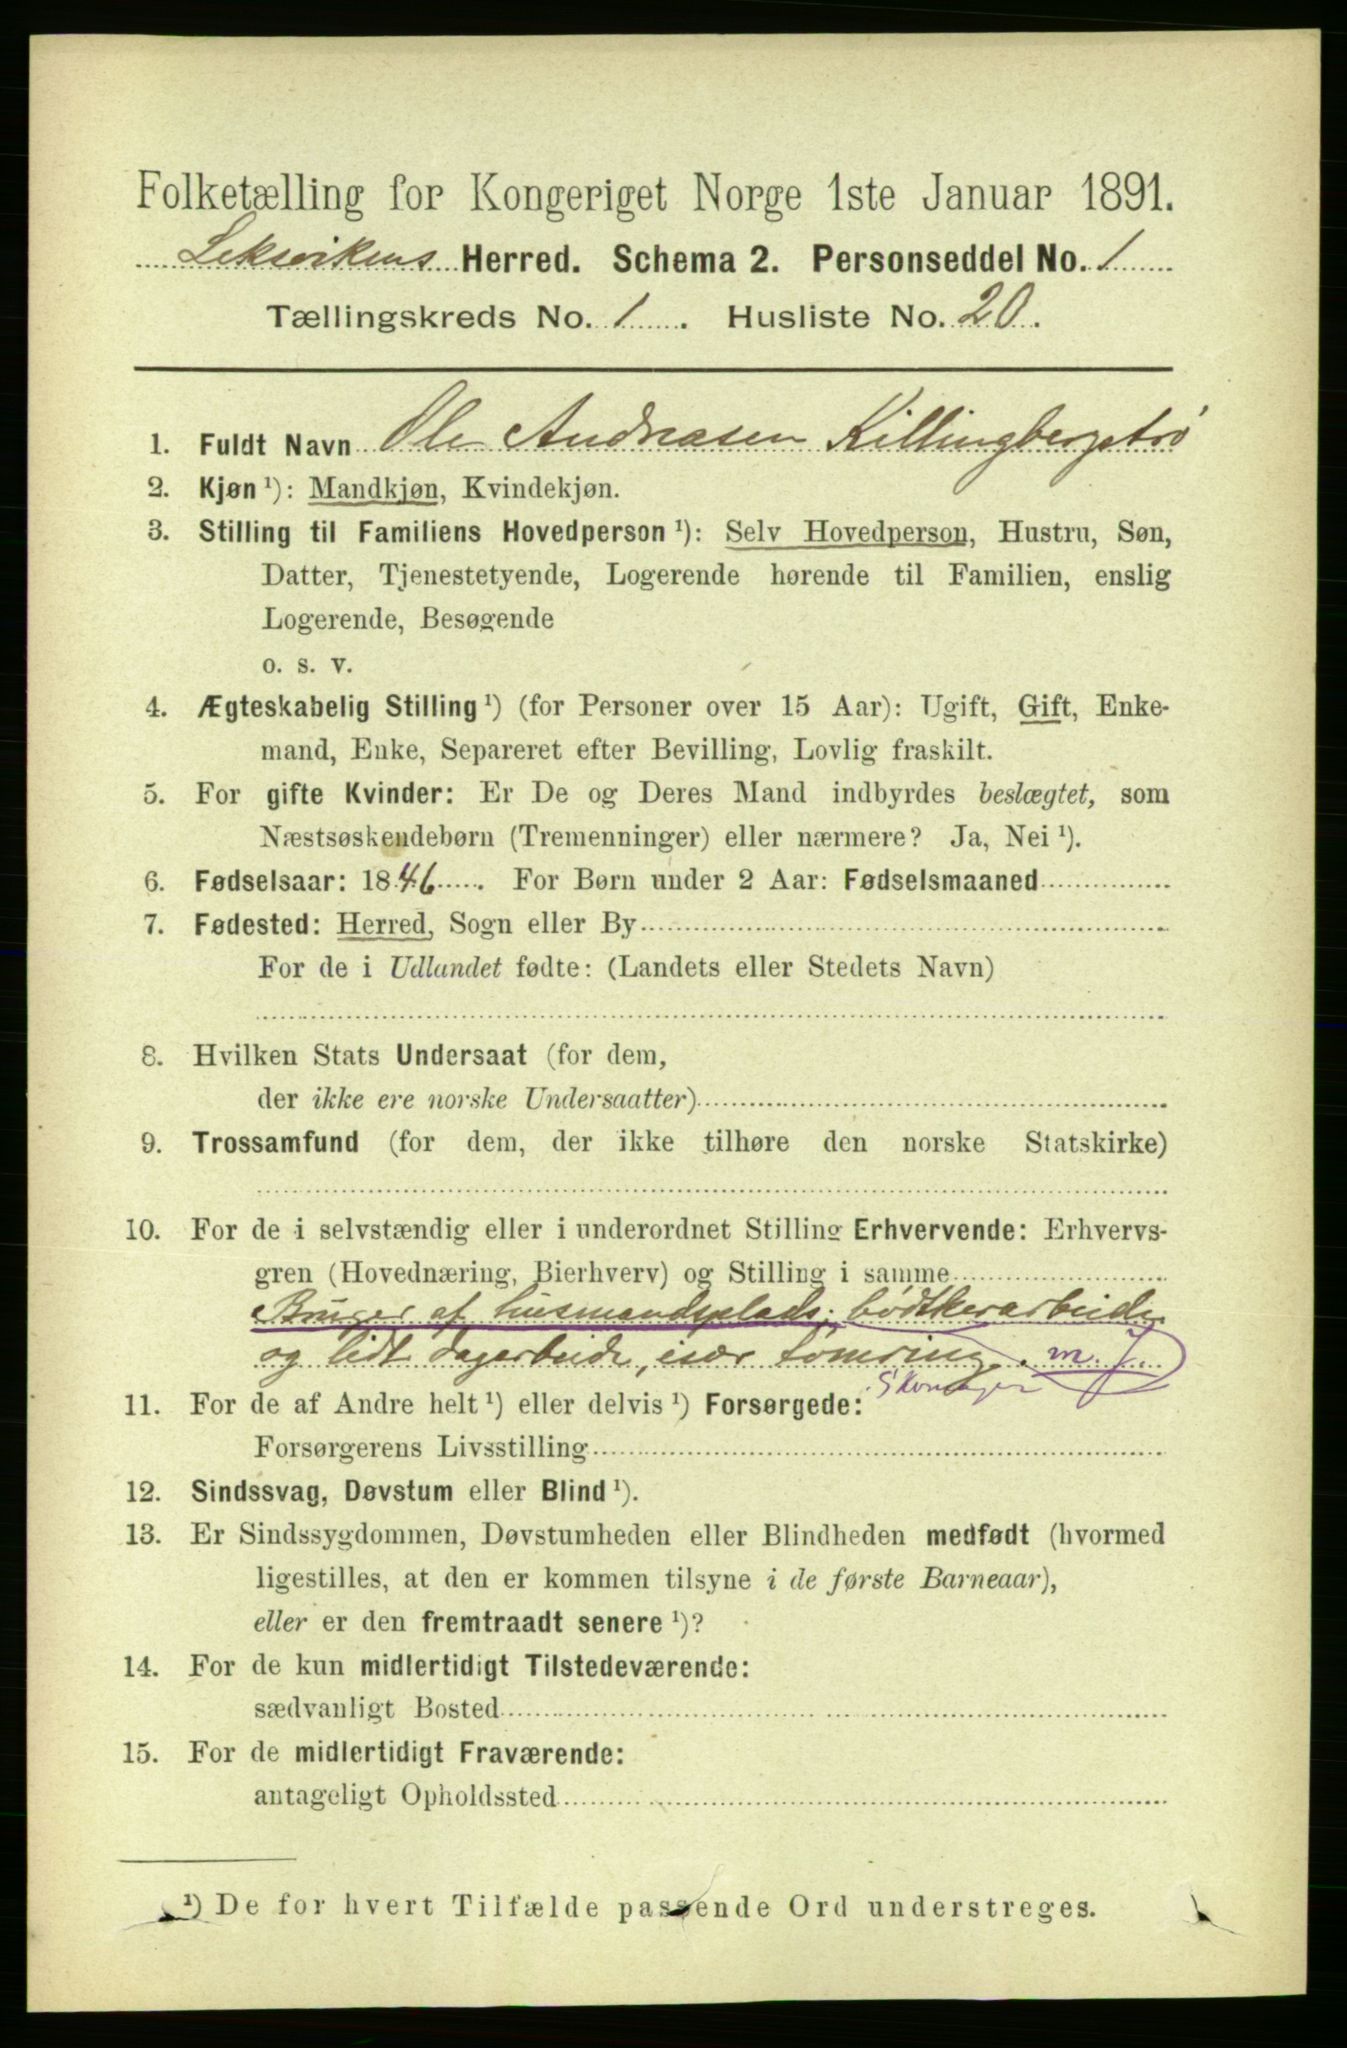 Folketælling for Kongeriget Norge 1ste Januar 1891.
Leksvikens Herred. Schema 2. Personseddel No. 1
Tællingskreds No. 1. Husliste No. 20.
1. Fuldt Navn Ole Andreasen Killingbergstrø
2. Kjøn ¹): Mandkjøn, Kvindekjøn.
3. Stilling til Familiens Hovedperson ¹): Selv Hovedperson, Hustru, Søn,
Datter, Tjenestetyende, Logerende hørende til Familien, enslig
Logerende, Besøgende
o. s. v.
4. Ægteskabelig Stilling ¹) (for Personer over 15 Aar): Ugift, Gift, Enke-
mand, Enke, Separeret efter Bevilling, Lovlig fraskilt.
5. For gifte Kvinder: Er De og Deres Mand indbyrdes beslægtet, som
Næstsøskendebørn (Tremenninger) eller nærmere? Ja, Nei ¹).
6. Fødselsaar: 1846. For Børn under 2 Aar: Fødselsmaaned
7. Fødested: Herred, Sogn eller By
For de i Udlandet fødte: (Landets eller Stedets Navn)
8. Hvilken Stats Undersaat (for dem,
der ikke ere norske Undersaatter)
9. Trossamfund (for dem, der ikke tilhøre den norske Statskirke)
10. For de i selvstændig eller i underordnet Stilling Erhvervende: Erhvervs-
gren (Hovednæring, Bierhverv) og Stilling i samme
Bruger af husmandsplads; bødkerarbeide
og lidt dagarbeide, især tømring. m. J.
11. For de af Andre helt ¹) eller delvis ¹) Forsørgede:
Forsørgerens Livsstilling
12. Sindssvag, Døvstum eller Blind ¹).
13. Er Sindssygdommen, Døvstumheden eller Blindheden medfødt (hvormed
ligestilles, at den er kommen tilsyne i de første Barneaar),
eller er den fremtraadt senere ¹)?
14. For de kun midlertidigt Tilstedeværende:
sædvanligt Bosted
15. For de midlertidigt Fraværende:
antageligt Opholdssted
¹) De for hvert Tilfælde passende Ord understreges.